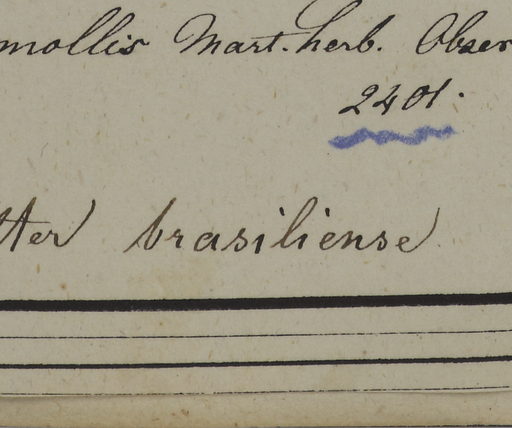 mollis Mart. herb. Obser
2401.
tter brasiliense